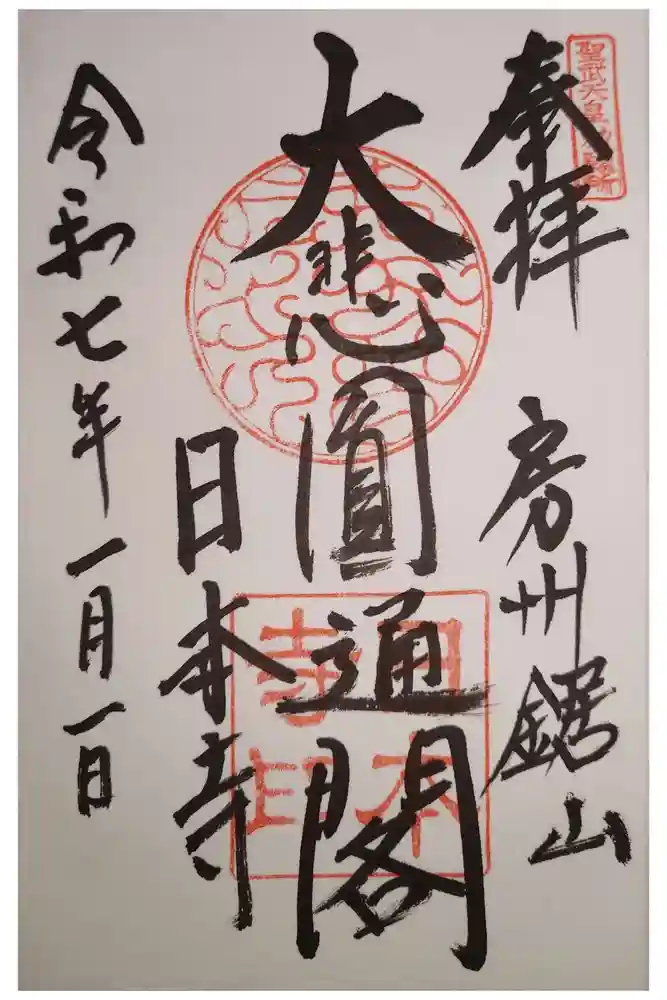 聖武天皇勅願所
奉拝
房州鋸山
大悲圓通閣
日本寺
日本寺印
令和七年一月一日